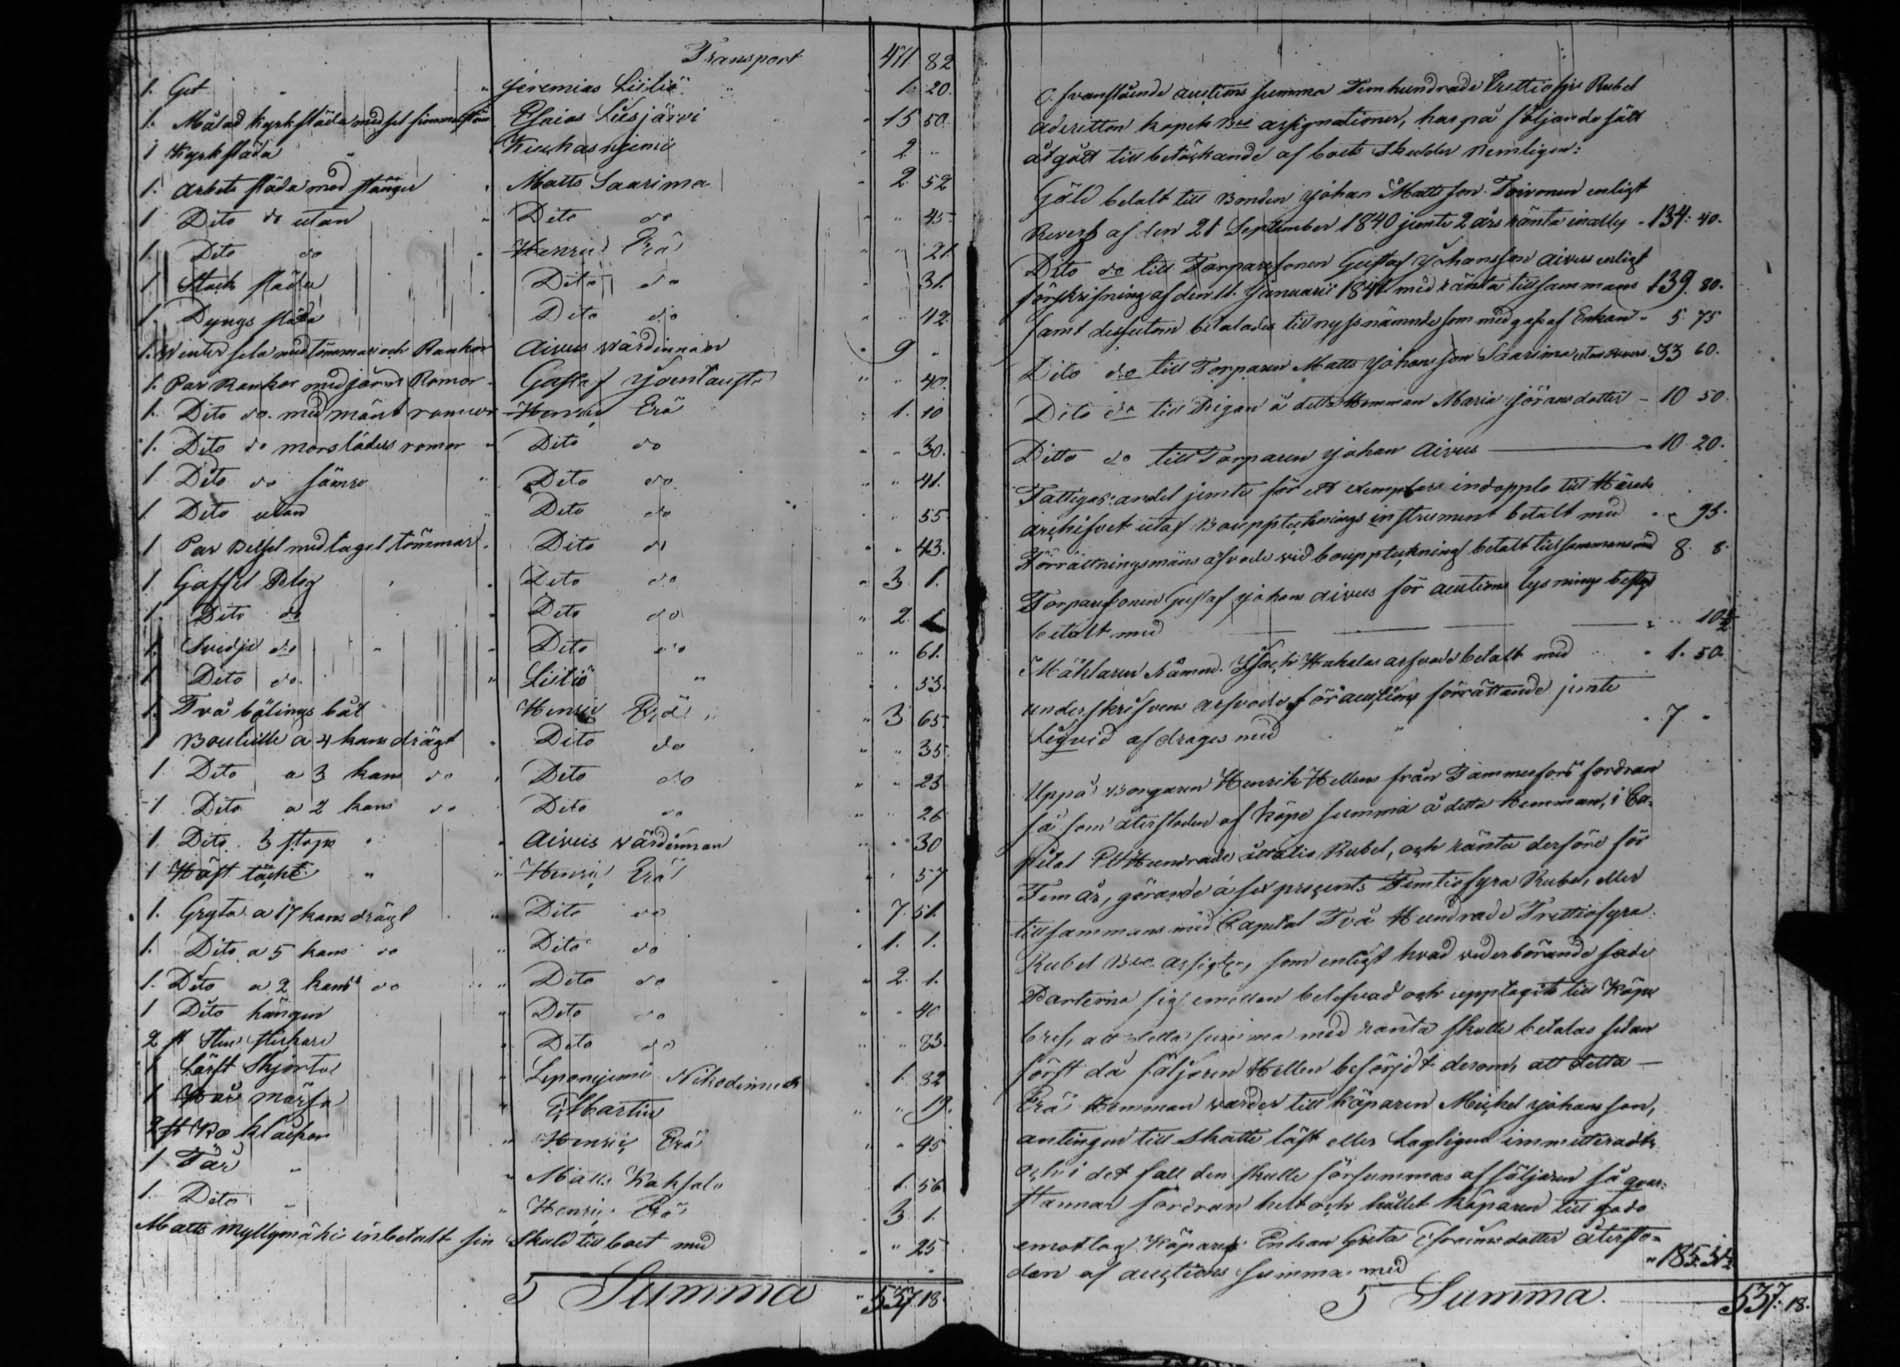 Transport 471 82
1. Get " Jeremias Liitiö " 1. 20.
1. Målad kyrksläda med Esaias Liesjärvi 15 50
1 Kyrksläda " 2 "
1. Arbets släda med stänger " Matts Saarima 2 52
1 Dito do utan " Dito do " 45
1. Dito do Henric Erä " 21
1 Stock släda Dito do 31.
1 Dyngs släda Dito do 42
1. Winter sela med tömmar och Rankor Aivus wärdinnan 9 "
1. Par Rankor med järn Romor Gustaf " 40.
1. Dito do. med romor Henric Erä 1. 10
1. Dito do romor Dito do " 30.
1 Dito do sämre Dito do " 41.
1 Dito utan Dito do " 55
1 Par Betsel med tagel tömmar Dito do " 43.
1 Gaffel Plog Dito do " 3 1.
1. Dito do Dito do " 2. 1.
1. Svidje do " Dito do " 61.
1 Dito do. " Liitiö " " 53.
1. Två bölings båt Henric Erä " " 3 65
1 Bouteille a 4 kans drägt Dito do " 35
1 Dito a 3 kans do Dito do " 23
1 Dito a 2 kans do Dito do " 26
1 Dito 3 stops " Aivus wärdinnan " 30
1 Häst täcke " Henric Erä " 57
1. Gryta a 17 kans drägt Dito do 7. 51.
1. Dito a 5 kans do Dito do 1. 1.
1. Dito a 2 kans do Dito do 2. 1.
1 Dito hängen Dito do " 40
2 st Dito do " 83.
1 Lärft Skjorta Leponjemi Nikodemus 1. 32
1 Martin " 19.
2 st Henric Erä " 45
1 Får " Matts 1. 56
1. Dito " Henric Erä 3 1.
Matts Myllymäki inbetalt sin skuld till boet med " 25
S Summa " 537. 18.
O. franstående auctions summa Femhundrade Trettiosju Rubel
aderitton kopek Bco assignationer, har på följande sätt
åtgått till betäckande af boets skulder nemligen:
Gäld betalt till Bonden Johan Mattsson Toivonen enligt
Revers af den 21 September 1840 jemte 2 års ränta inalles 134: 40.
Dito do till Torparesonen Gustaf Johansson Aivus enligt
förskrifning af den 11. Januarii 1841 med ränta tillsammans 139. 80.
samt dessutom betalades till nyssnämnde som af Enkan 5 75
Dito do till Torparen Matts Johansson Saarima utan Revers 33 60.
Dito do till Pigan å detta Hemman Maria Göransdotter 10 50.
Ditto do till Torparen Johan Aivus 10 20.
Fattigas andel jemte för ett exemplar till Härads
archivet utaf Bouppteknings instrument betalt med " 95.
Förrättningsmäns arfvode vid bouppteckning betalt tillsammans med 8. 8.
Torparesonen Gustaf Johans Aivus för auctions lysnings bestyr
betalt med " 10½
Mäklaren Nämnd. Isac Hakalas arfvode betalt med 1. 50.
underskrifven arfvode för auctions förrättande jemte
liqvid afdrages med " 7 "
Uppå Borgaren Henrik Hellens från Tammerfors fordran
så som återstoden af köpe summa å detta Hemman, i Ca-
pital Ett Hundrade åttatio Rubel, och ränta derföre för
Fem år, görande á sex procents Femtiofyra Rubel, eller
tillsammans med Capital Två Hundrade Trettiofyra
Rubel Bco assigter, som enligt hvad vederbörande både
Parterna sig emellan belefvad och upptagit till Köpe
bref, att detta summa med ränta skulle betalas sedan
först då säljaren Hellen besörjdt derom, att detta
Erä Hemman warder till köparen Michel Johansson,
antingen till skatte löst eller Lagligen immitteradt,
och i det fall den skulle försummas af säljaren så qvar-
stannar fordran helt och hållet köparen till godo
emottog Köparens Enkan Greta Esaiasdotter återsto-
den af auctions summa med " 185. 31½
S Summa. 537: 18.